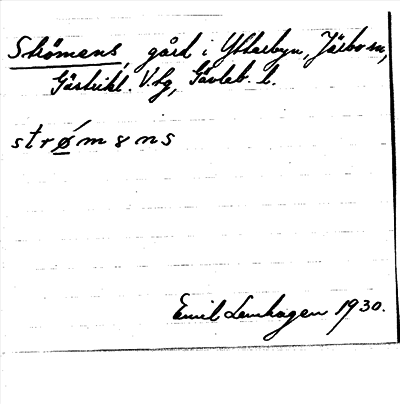 Strömens, gård i Ytterbyn, Järbo sn,
Gästrikl. V. tg, Gävleb. l.
strǿməns
Emil Lenhagen 1930.